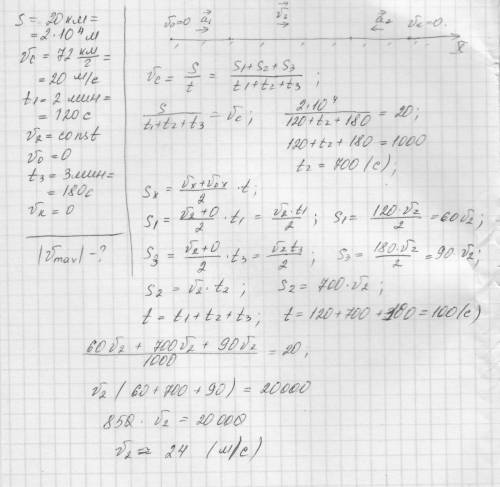 S = 20 км =
= 2·10⁴ м
v_c = 72 км/г =
= 20 м/с
t₁ = 2 мин =
= 120 с
v₂ = const
v₀ = 0
t₃ = 3 мин =
= 180 с
v_к = 0
|v_max| - ?
v₀=0 a₁ v₂ a₂ v_к=0
X
v_c = S/t = (S₁+S₂+S₃)/(t₁+t₂+t₃) ;
S/(t₁+t₂+t₃) = v_c ; 2·10⁴/(120+t₂+180) = 20;
120+t₂+180 = 1000
t₂ = 700 (с);
S_x = (v_x+v_0x)/2 · t;
S₁ = (v₂+0)/2 · t₁ = (v₂·t₁)/2 ; S₁ = (120·v₂)/2 = 60v₂;
S₃ = (v₂+0)/2 · t₃ = (v₂t₃)/2 ; S₃ = (180·v₂)/2 = 90v₂;
S₂ = v₂·t₂ ; S₂ = 700·v₂;
t = t₁+t₂+t₃ ; t = 120+700+180 = 100(с)
(60v₂ + 700v₂ + 90v₂)/1000 = 20;
v₂ (60+700+90) = 20000
850 · v₂ = 20000
v₂ = 24 (м/с)